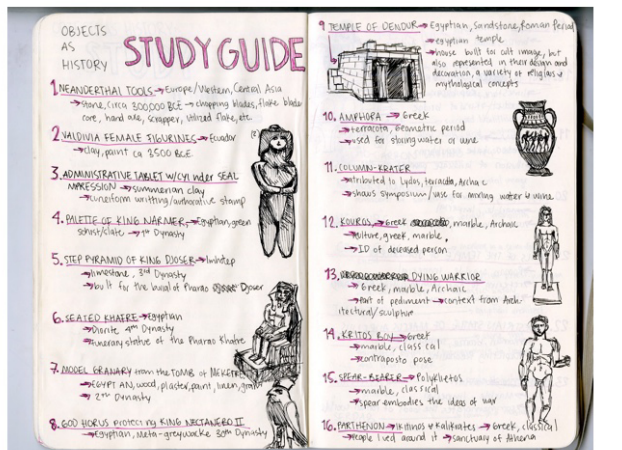 OBJECTS
AS
HISTORY
STUDY GUIDE
1. NEANDERTHAL TOOLS → Europe/Western, Central Asia
→ stone, circa 300,000 BCE → chopping blades, flake blade
core, hand axe, scrapper, utilized flake, etc.
2. VALDIVIA FEMALE FIGURINES → Ecuador
→ clay, paint ca 3500 BCE
(2)
3. ADMINISTRATIVE TABLET W/CYLINDER SEAL
IMPRESSION → summerian clay
→ cuneiform writting/authorative stamp
4. PALETTE OF KING NARMER → Egyptian, green
schist/slate → 1st Dynasty
5. STEP PYRAMID OF KING DJOSER → Imhotep
→ limestone, 3rd Dynasty
→ built for the burial of Pharao Djoser
6. SEATED KHAFRE → Egyptian
→ Diorite 4th Dynasty
→ Funerary statue of the Pharao Khafre
7. MODEL GRANARY from the TOMB OF MEKETRE
→ EGYPTIAN, wood, plaster, paint, linen, grain
→ Dynasty
8. GOD HORUS protecting KING NECTANEBO II
→ Egyptian, Meta-greywacke 30th Dynasty
9. TEMPLE OF DENDUR → Egyptian, Sandstone, Roman Period
→ egyptian temple
→ house built for cult image, but
also represented in their design and
decoration, a variety of religious &
mythological concepts
10. AMPHORA → Greek
→ terracota, Geometric period
→ used for storing water or wine
11. COLUMN-KRATER
→ attributed to Lydos, terracotta, Archaic
→ shows symposium/vase for mixing water & wine
12. KOUROS → Greek marble, Archaic
→ greek, marble,
→ ID of deceased person
13. DYING WARRIOR
→ Greek, marble, Archaic
→ Part of pediment → context from Arch-
itectural/sculpture
14. KRITOS BOY → Greek
→ marble, classical
→ contraposto pose
15. SPEAR-BEARER → Polykleitos
→ marble, classical
→ spear embodies the ideas of war
16. PARTHENON → Iktinos & Kalikrates → Greek, classical
→ People lived around it → sanctuary of Athena